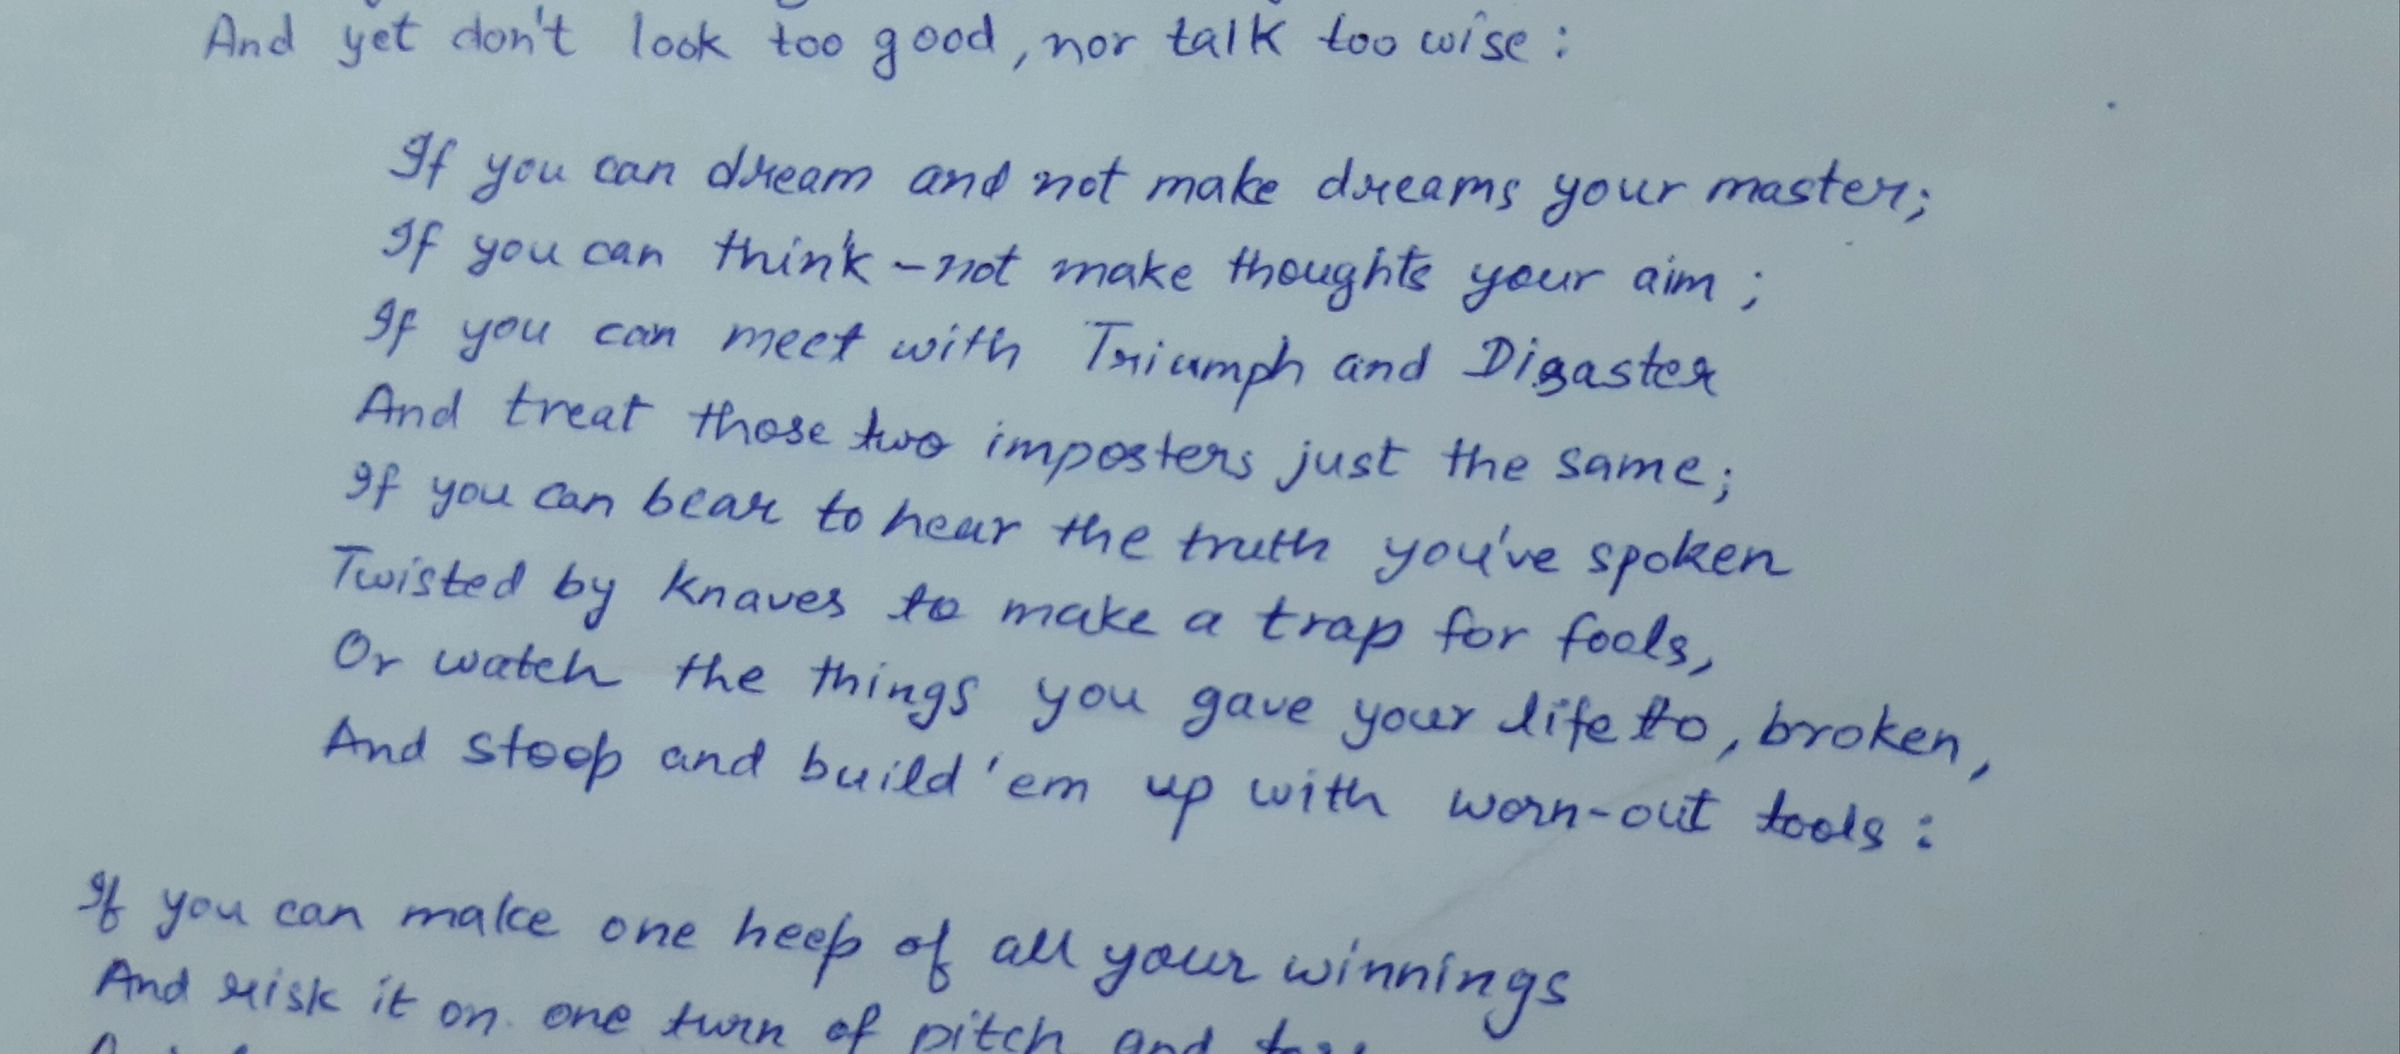 And yet don't look too good, nor talk too wise :
If you can dream and not make dreams your master;
If you can think - not make thoughts your aim ;
If you can meet with Triumph and Disaster
And treat those two imposters just the same;
If you can bear to hear the truth you've spoken
Twisted by knaves to make a trap for fools,
Or watch the things you gave your life to, broken,
And stoop and build 'em up with worn-out tools :
If you can make one heep of all your winnings
And risk it on one turn of pitch and